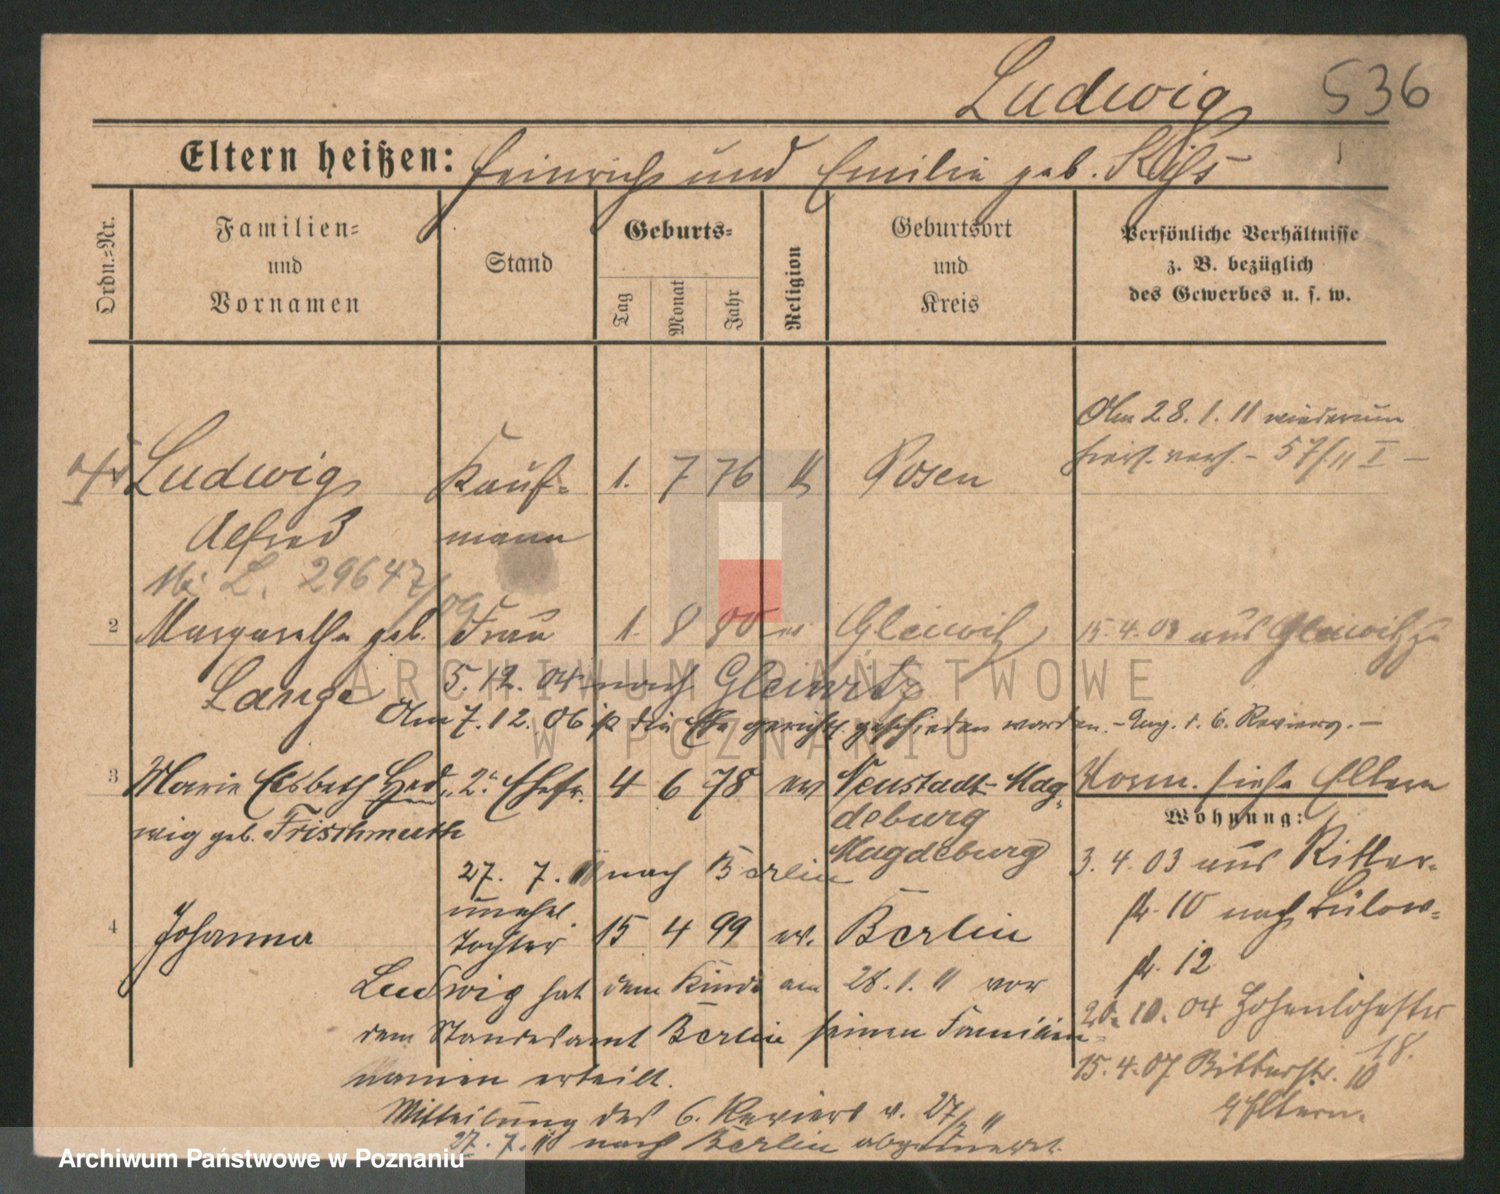 Ludwig 536
Eltern heißen: Heinrich und Emilie geb.
Ordn.-Nr.
Familien-
und
Vornamen
Stand
Geburts-
Tag
Monat
Jahr
Religion
Geburtsort
und
Kreis
Persönliche Verhältnisse
z. B. bezüglich
des Gewerbes u. s. w.
Am 28.1.11 wiederum
57/11 I –
Ludwig Kauf- 1. 7 76 k Posen
Alfred mann
L. 29647/09
2 Margarethe geb. Frau 1. 8 80 Gleiwitz 15.4.03 aus Gleiwitz zu
Lange 5.12.04 nach Gleiwitz
Am 7.12.06 ist die Ehe gerichtl. geschieden worden. – 6. Reviers. –
3 Marie Elsbeth Hed- 2. Ehefr. 4 6 78 ev Neustadt-Mag-
wig geb. Frischmuth deburg
Magdeburg
Vorm. siehe Eltern
Wohnung:
27. 7. 11 nach Berlin
3.4.03 aus Ritter-
str. 10 nach Bülow-
str. 12
4 Johanna unehel. Tochter 15 4 99 ev. Berlin
Ludwig hat dem Kinde am 28.1.11 vor
dem Standesamt Berlin seinen Familien-
namen erteilt.
20.10.04 Hohenlohestr
18.
15.4.07 Ritterstr. 10
Eltern.
Mitteilung des 6. Reviers v. 27/7 11
27.7.11 nach Berlin abgemeldet.
ARCHIWUM PAŃSTWOWE
W POZNANIU
Archiwum Państwowe w Poznaniu